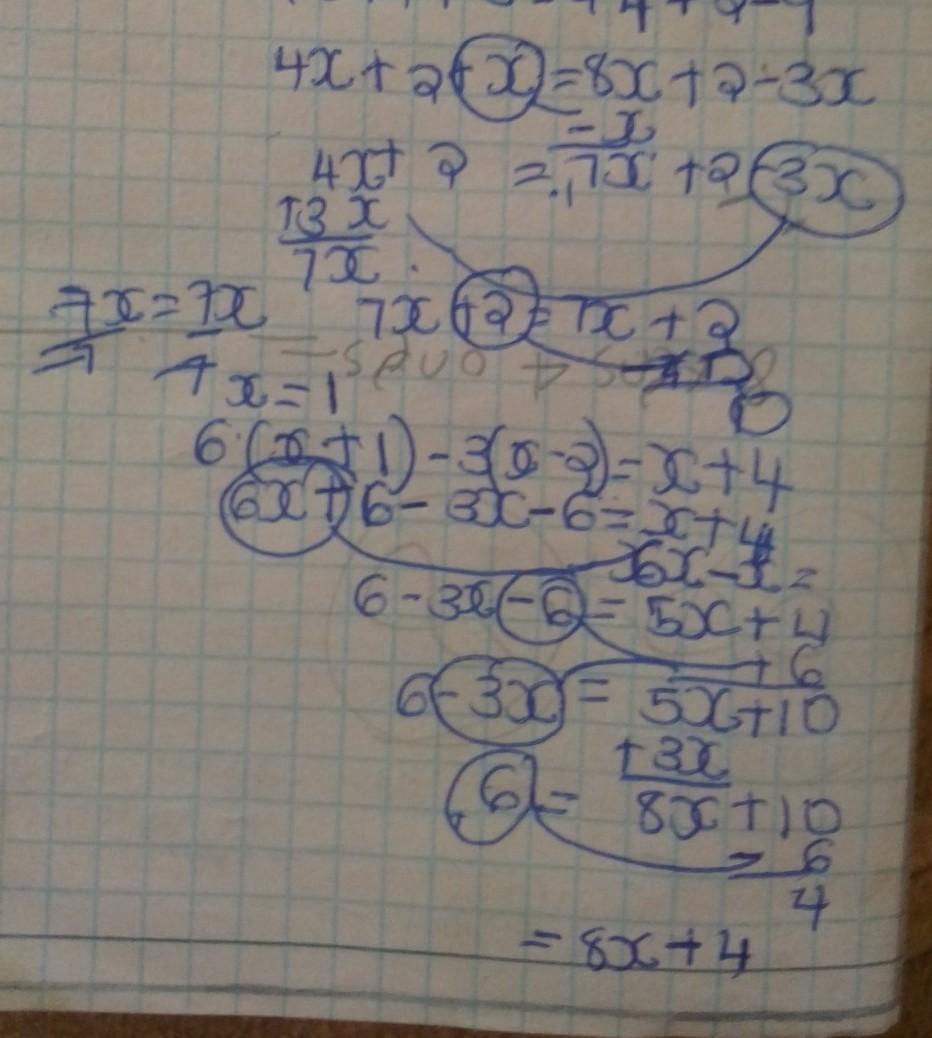 4x + 2 + x = 8x + 2 - 3x
- x
4x + 2 = 7x + 2 - 3x
+3x
7x
7x + 2 = 7x + 2
7x = 7x
- 2
7 7
0
x = 1
6(x + 1) - 3(x - 2) = x + 4
6x + 6 - 3x - 6 = x + 4
6x - x =
6 - 3x - 6 = 5x + 4
+ 6
6 - 3x = 5x + 10
+ 3x
6 = 8x + 10
- 6
4
= 8x + 4